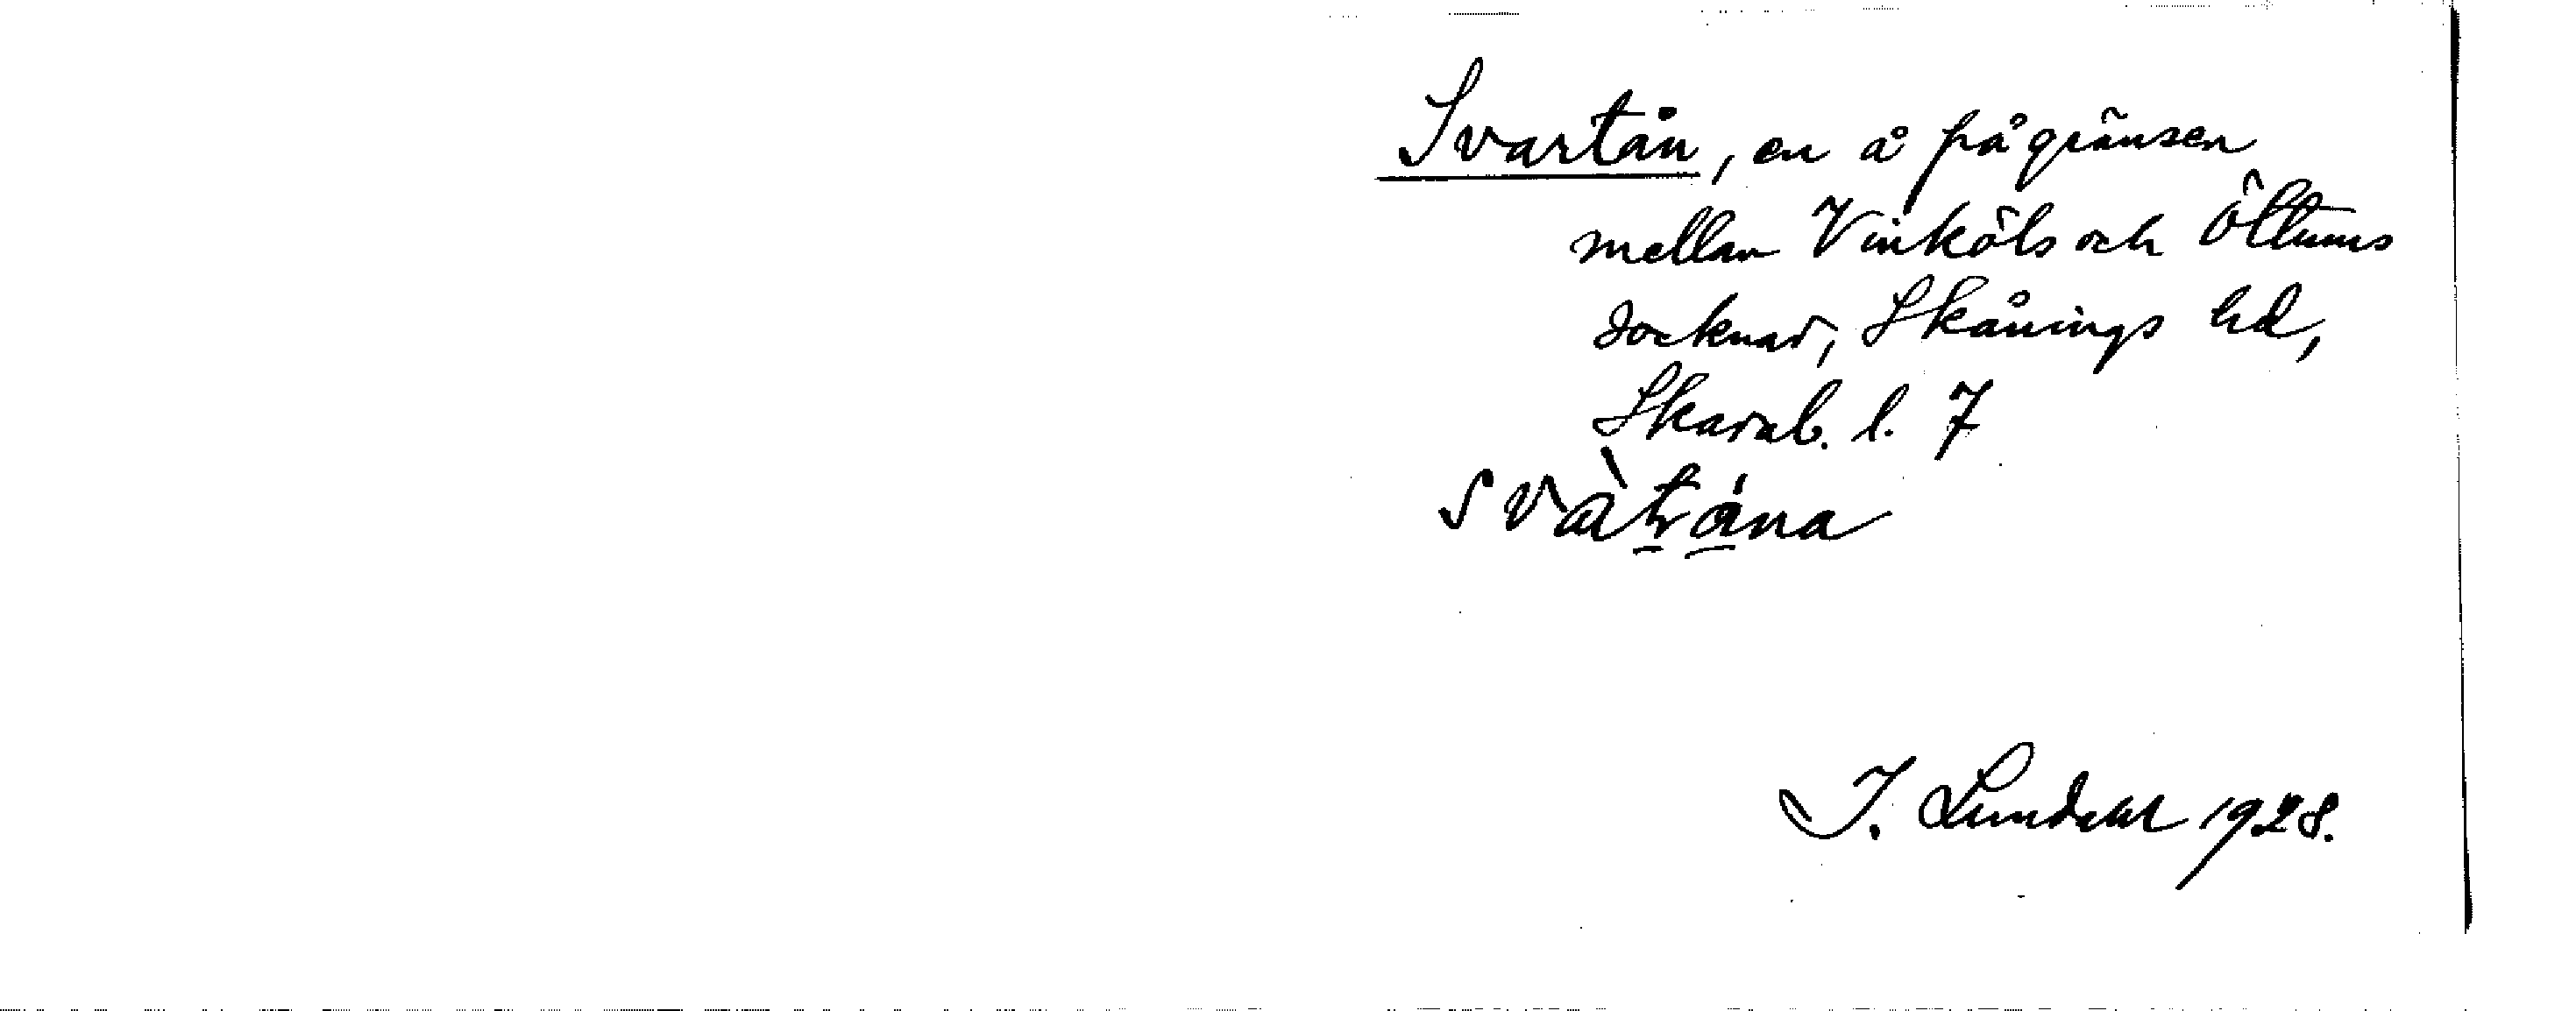 Svartån, en å på gränsen
mellan Vinköls och Öttums
socknar, Skånings hd,
Skarab. l. 7
svàtråna
I. Lundahl 1928.